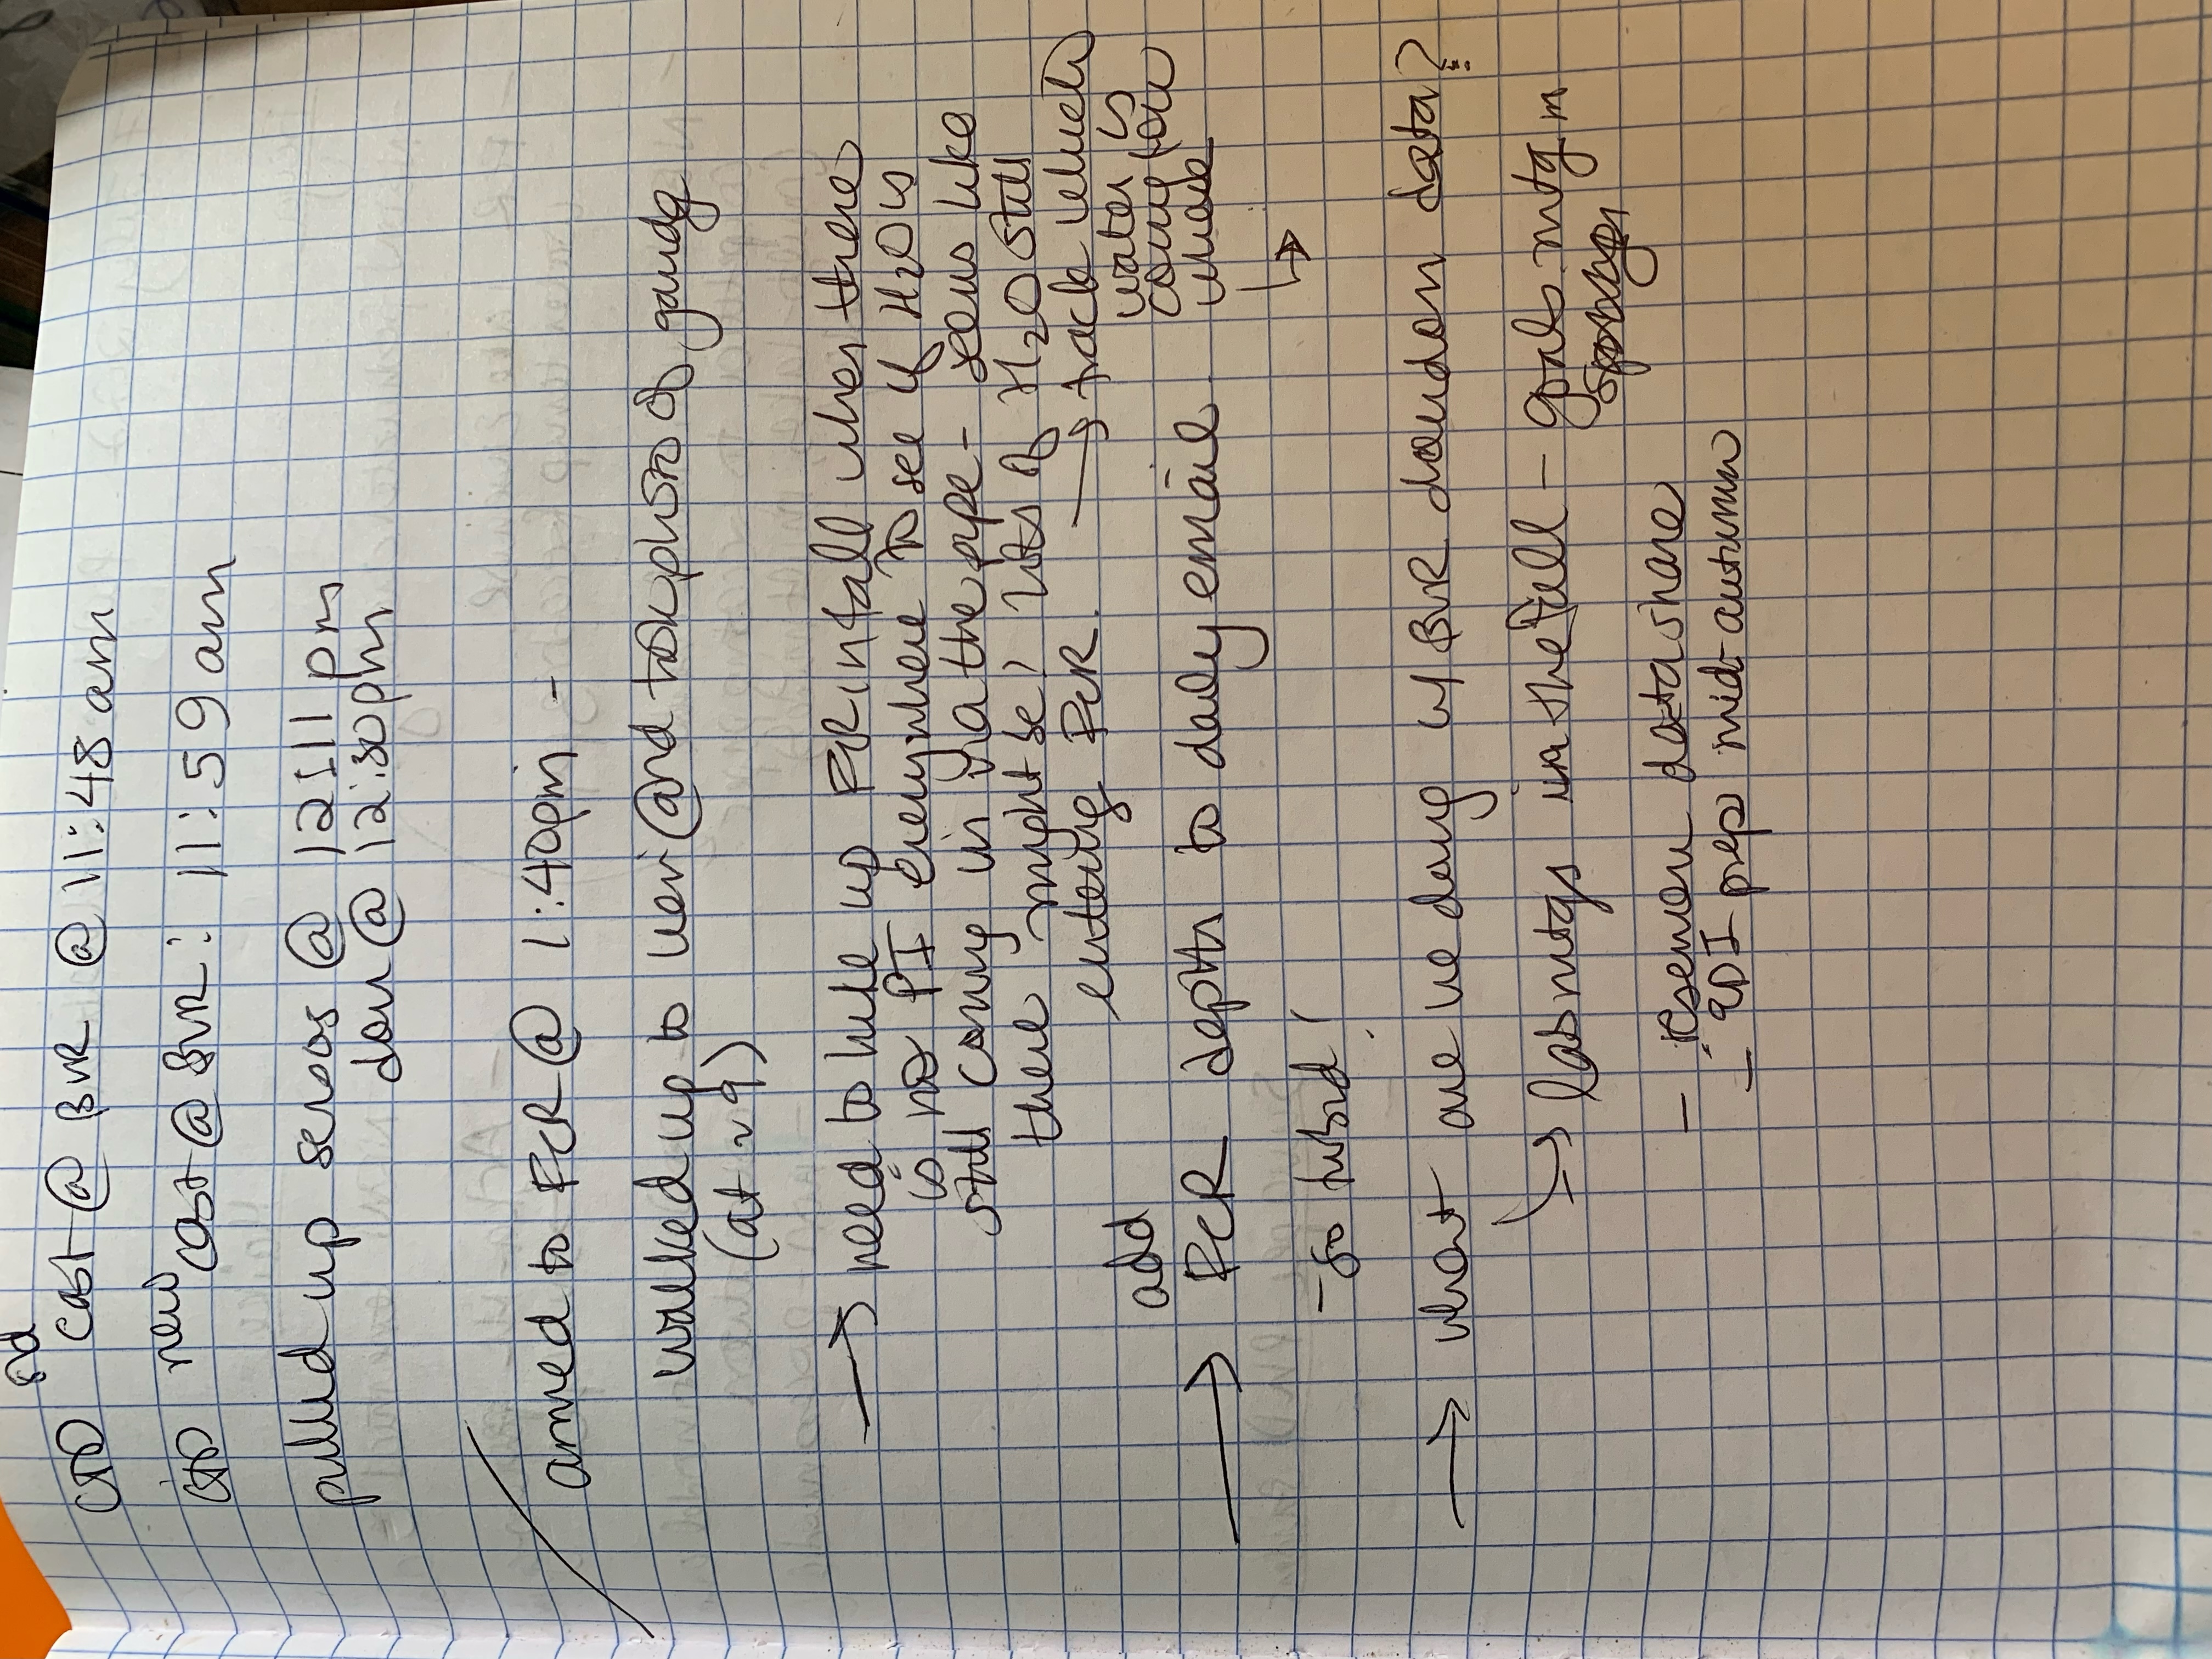 old
CTD cast @ BVR @ 11:48 am
CTD new cast @ BVR: 11:59 am
pulled up sensors @ 12:11 pm
down @ 12:30pm
arrived to FCR @ 1:40pm -
walked up to weir and took photo of gaudg
(at ~9)
→ need to hike up FCR in fall when there
is no PI everywhere to see if H2O is
still coming in via the pipe - seems like
there might be! lots of H2O still
entering FCR. → track which
water is
coming from
where
↳
add
→ FCR depth to daily email
- so turbid!
→ what are we doing w/ BVR drawdown data?
↳ lab mtgs in the Fall - goals mtg in
- reservoir data share
- EDI prep mid-autumn